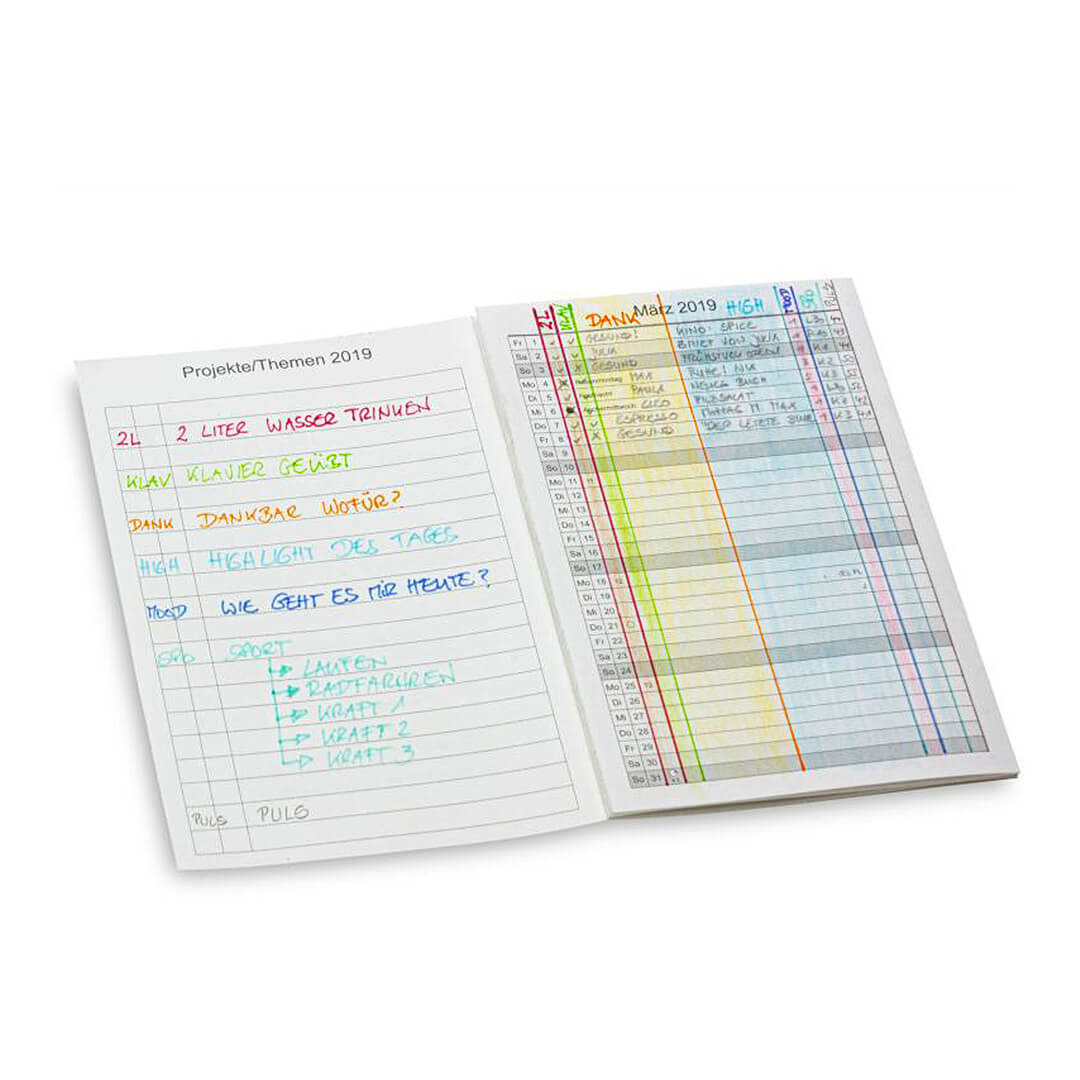 Projekte/Themen 2019
2L 2 LITER WASSER TRINKEN
KLAV KLAVIER GEÜBT
DANK DANKBAR WOFÜR?
HIGH HIGHLIGHT DES TAGES
MOOD WIE GEHT ES MIR HEUTE?
SPO SPORT
LAUFEN
RADFAHREN
KRAFT 1
KRAFT 2
KRAFT 3
PULS PULS
März 2019
2L KLAV DANK HIGH MOOD SPO PULS
Fr 1 GESUND! KINO: SPICE
Sa 2 JULIA BRIEF VON JULIA
So 3 GESUND
Mo 4 Rosenmontag MAX
Di 5 Fastnacht PAULA NEUES BUCH
Mi 6 Aschermittwoch COCO
Do 7 ESPRESSO MITTAG M. MAX
Fr 8 GESUND "DER LETZTE
Sa 9
So 10
Mo 11 11
Di 12
Mi 13
Do 14
Fr 15
Sa 16
So 17
Mo 18 12
Di 19
Mi 20
Do 21
Fr 22
Sa 23
So 24
Mo 25 13
Di 26
Mi 27
Do 28
Fr 29
Sa 30
So 31